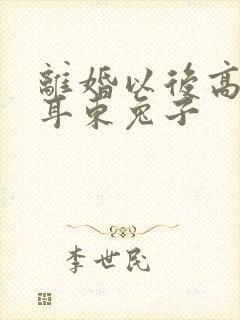 離婚以後高
耳東兔子
李世民